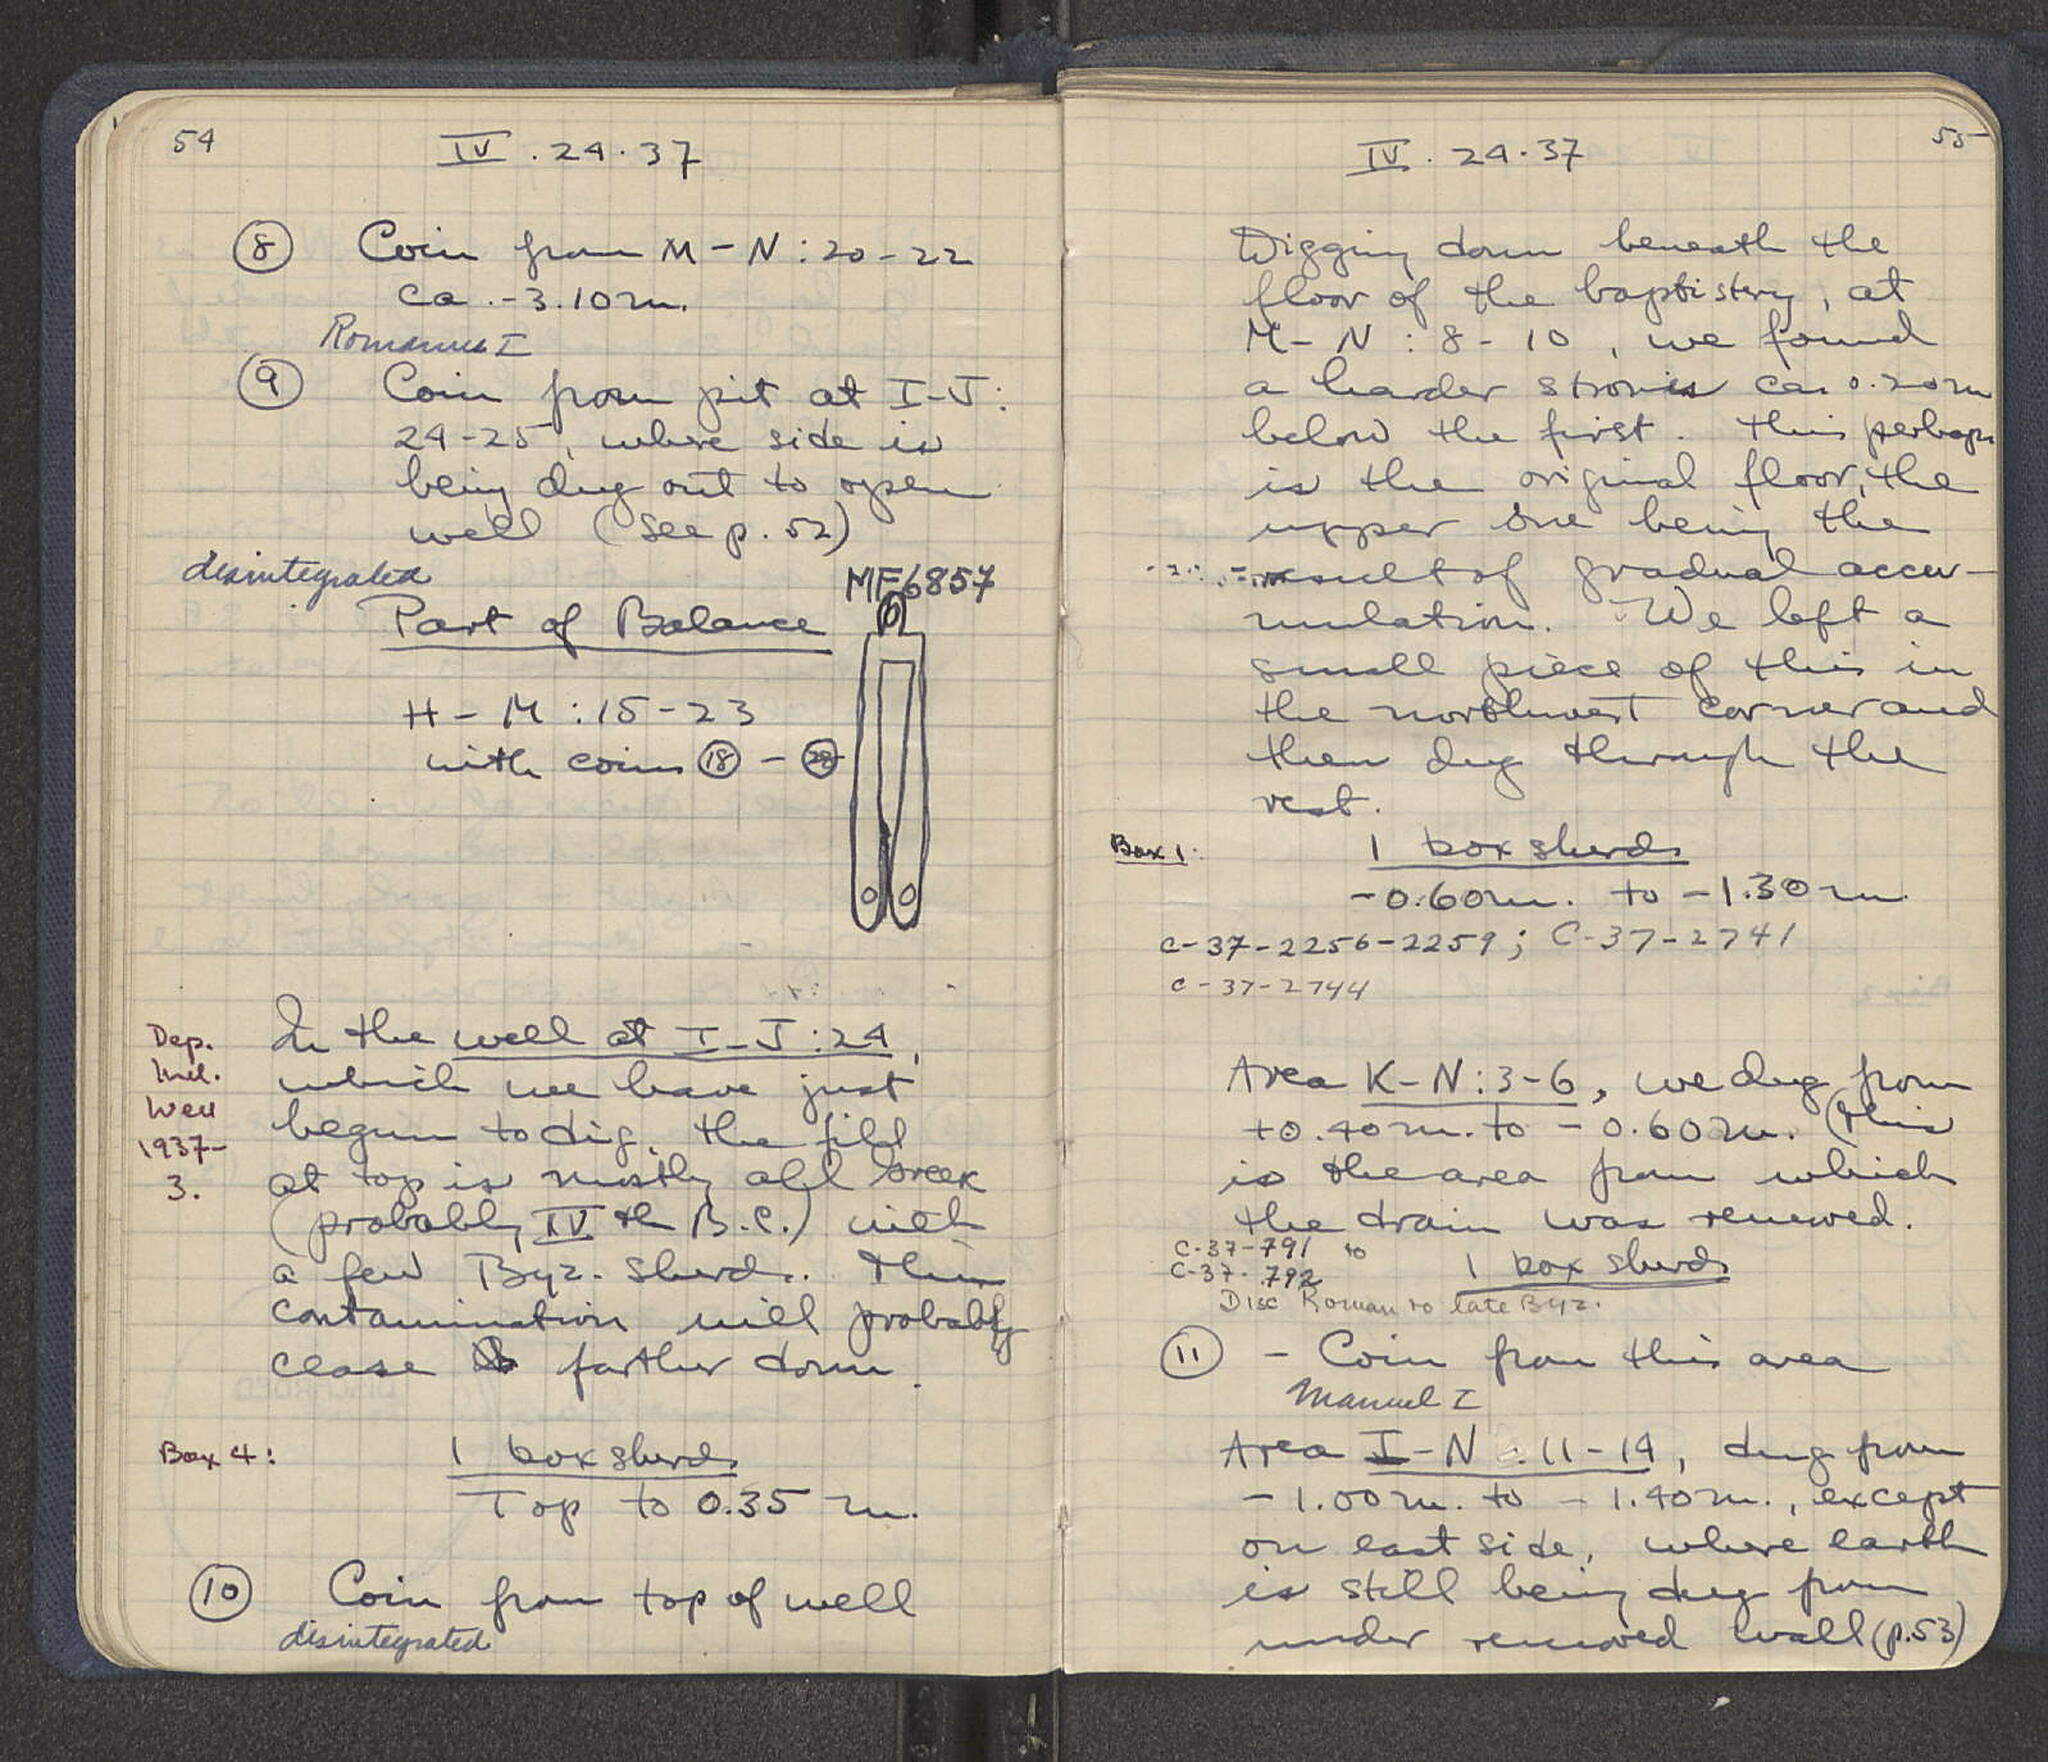 54
IV . 24 . 37
⑧ Coin from M - N : 20 - 22
ca. - 3.10 m.
Romanus I
⑨ Coin from pit at I-J :
24 - 25, where side is
being dug out to open
well (see p. 52)
disintegrated
MF6857
Part of Balance
H - M : 15 - 23
with coins ⑱ -
Dep.
Incl.
Well
1937-
3.
In the well at I-J : 24,
which we have just
begun to dig, the fill
at top is mostly all Greek
(probably IV th B.C.) with
a few Byz. sherds. This
contamination will probably
cease farther down.
Box 4:
1 box sherds
Top to 0.35 m.
⑩ Coin from top of well
disintegrated
55
IV . 24 . 37
Digging down beneath the
floor of the baptistery, at
M - N : 8 - 10, we found
a harder stromis ca. 0.20 m
below the first. This perhaps
is the original floor, the
upper one being the
result of gradual accu-
mulation. We left a
small piece of this in
the northwest corner and
then dug through the
rest.
Box 1:
1 box sherds
- 0.60 m. to - 1.30 m.
C-37-2256-2259; C-37-2741
C-37-2744
Area K-N:3-6, we dug from
+0.40 m. to - 0.60 m. (this
is the area from which
the drain was removed.
C-37-791 to
C-37-792
1 box sherds
Disc Roman to late Byz.
⑪ - Coin from this area
Manuel I
Area I-N : 11-14, dug from
- 1.00 m. to - 1.40 m., except
on east side, where earth
is still being dug from
under removed wall (p. 53)